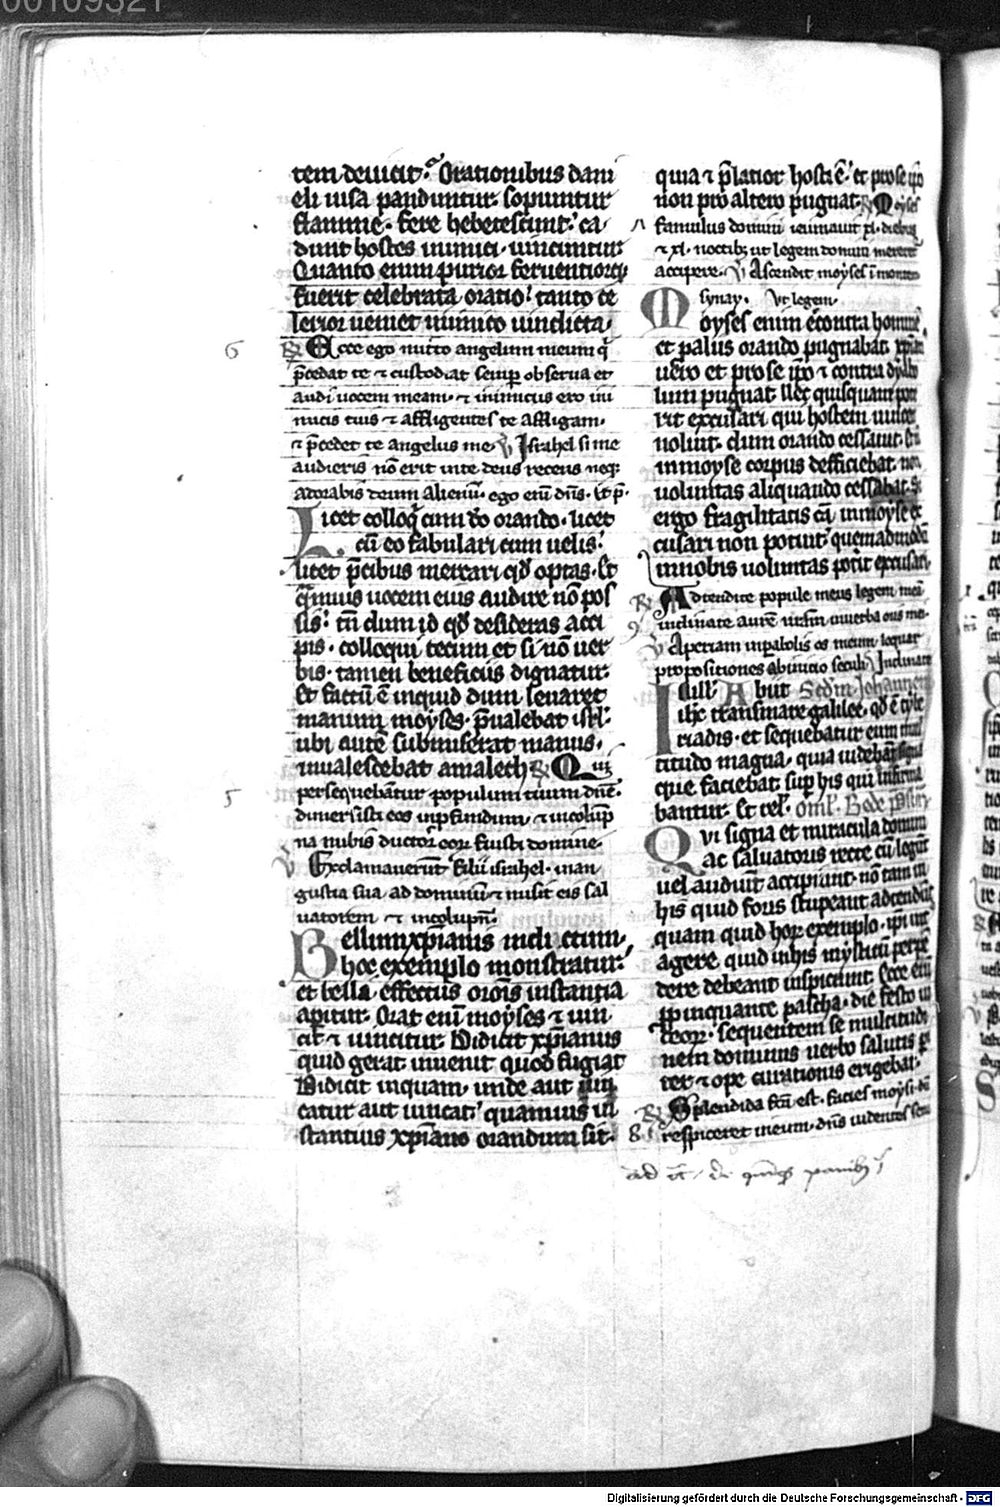 00109321
tem deuicit. Orationibus dani
eli uisa panduntur. sopiuntur
flamme. fere hebetescunt. ca
dunt hostes inimici uincuntur
Quanto enim purior feruentiorqꝫ
fuerit celebrata oratio. tanto ce
lerior ueniet inimico uindicta.
6
℟ Ecce ego mitto angelum meum qͥ
p̄cedat te ⁊ custodiat semꝑ obserua et
audi uocem meam. ⁊ inimicus ero ini
micis tuis ⁊ affligentes te affligam.
⁊ p̄cedet te angelus me. ℣ Israhel si me
audieris nō erit in te deus recens neqꝫ
adorabis deum alienū. ego enī dn̄s. Et p̄.
Licet colloqͥ cum dō orando. licet
cū eo fabulari cum uelis.
licet p̄cibus mercari qd̄ optas. Et
qͣmuis uocem eius audire nō pos
sis. tn̄ dum id qd̄ desideras acci
pis. colloqui tecum et si nō uer
bis. tamen beneficiis dignatur.
Et factū ē inquid dum leuaret
manum moyses. p̄ualebat isrl̄.
ubi autē submiserat manus.
inualescebat amalech ℟ Qui
5
persequebātur populum tuum dn̄e.
dimersisti eos in ꝓfundum. ⁊ in colūp
na nubis ductor eoꝝ fuisti domine.
℣ Exclamauerūt filii israhel. in an
gustia sua ad dominū ⁊ misit eis sal
uatorem ⁊ in colupn̄.
Bellum xp̄ianis indictum.
hoc exemplo monstratur.
et bella effectus orōis instantia
aperitur. Orat enī moyses ⁊ uin
cit ⁊ uincitur. Didicit xp̄ianus
quid gerat inuenit quod fugiat
Didicit inquam. unde aut uin
catur aut uincat. quamuis in
stantius xp̄iano orandum sit.
quia ⁊ p̄latior hostis ē. et pro se ip̄o
non pro altero pugnat. ℟ Moyses
famulus domini ieiunauit xl. diebus
⁊ xl. noctibꝫ ut legem domini merere
accipere. ℣ Ascendit moyses ī montem
synay. Ut legem.
Moyses enim ēcontra hominē
et palus orando pugnabat xp̄ianus
uero et pro se ip̄o ⁊ contra dyabo
lum pugnat. Nec quisquam pote
rit excusari qui hostem uincere
noluit. dum orando cessauit. Et
in moyse corpus defficiebat. non
uoluntas aliquando cessabat. Si
ergo fragilitatis cā in moyse ex
cusari non potuit. quemadmodū
in nobis uoluntas poterit excusari.
℟ Adtendite popule meus legem meā
inclinate aurē urām in uerba oris me.
9
℣ Aperiam in parabolis os meum. loquar
propositiones ab inicio seculi. Inclinate
In ill. Abiit Scd̄m Johannem
ih̄c trans mare galilee. qd̄ ē tybe
riadis. et sequebatur eum mul
titudo magna. quia uidebāt signa
que faciebat suꝑ his qui infirma
bantur. Et rel. Oml. Bede pr̄sbrī.
Qui signa et miracula domini
ac saluatoris recte cū legunt
uel audiunt accipiunt. nō tam in
his quid foris stupeant adtendūt
quam quid hoꝝ exemplo. ipsi int
agere. quid in his mysticū perpē
dere debeant inspiciunt. Ecce enī
ꝓpinquante pascha. die festo iu
deoꝝ. sequentem se multitudi
nem dominus uerbo salutis pa
ter ⁊ ope curationis erigebat.
℟ Splendida fcā est. facies moysi. dū
8
respiceret in eum. dn̄s uidentes sen
Digitalisierung gefördert durch die Deutsche Forschungsgemeinschaft - DFG